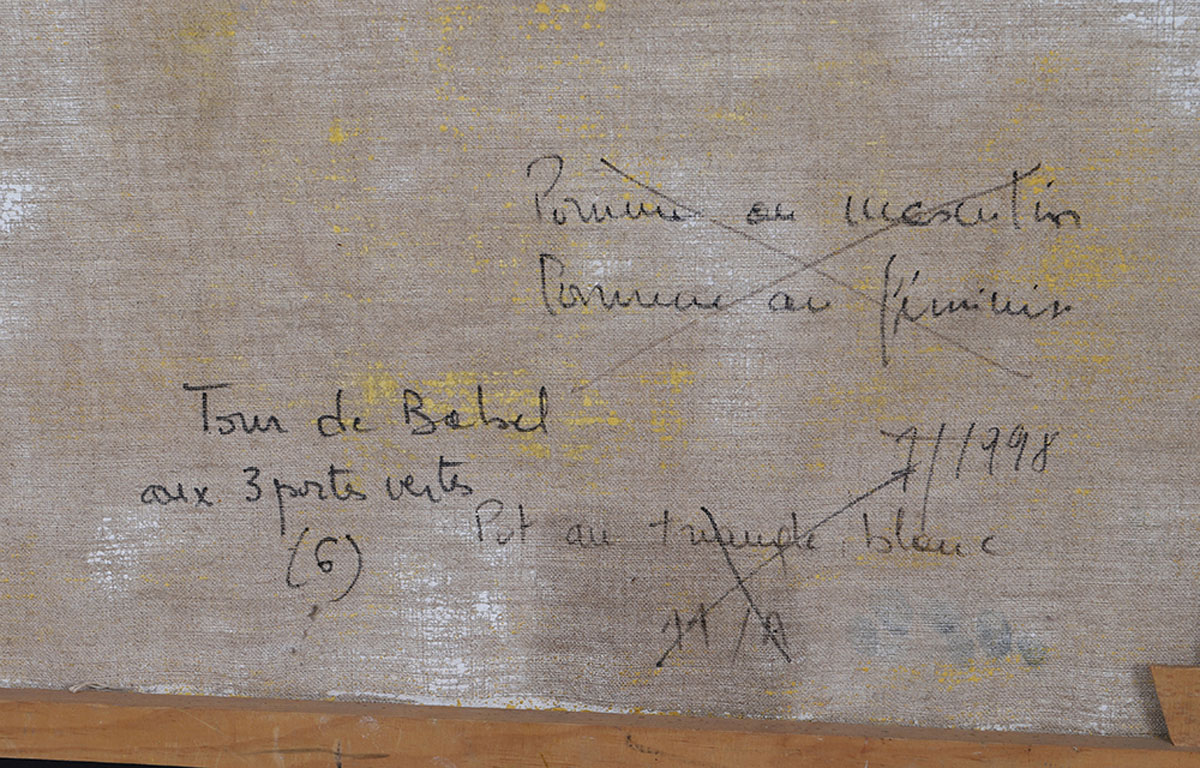 Pomme au masculin
Pomme au féminin
Tour de Babel
aux 3 portes vertes
(6)
7/1998
Pot au triangle blanc